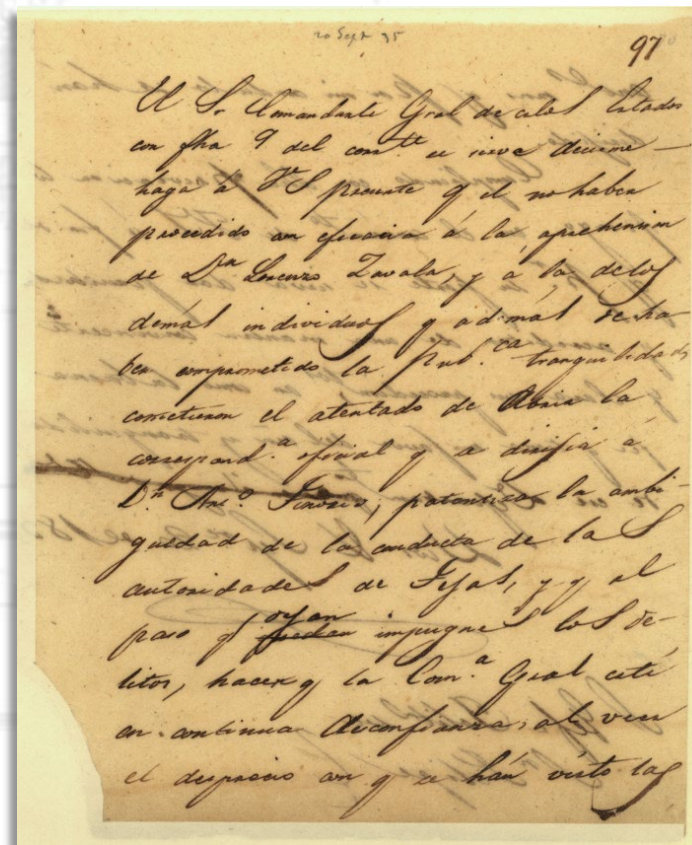 20 Sept 35
97
El Sr Comandante Gral de estos Estados
con fha 9 del corrte se sirve decirme
haga á V.S. presente q el no haber
procedido con eficacia á la aprehencion
de Dn Lorenzo Zavala, y á la de los
demás individuos q ademas de ha-
ber comprometido la Pubca tranquilidad
cometieron el atentado de Abrir la
correspond.a oficial q se dirijia á
D.n Anto Tenorio, patentica la ambi-
guedad de la conducta de la S
autoridades de Tejas, y q al
paso q dejan impugnes los de-
litos, hacen q la Com.a Gral esté
en continua desconfianza, al ver
el desprecio con q se hán visto las